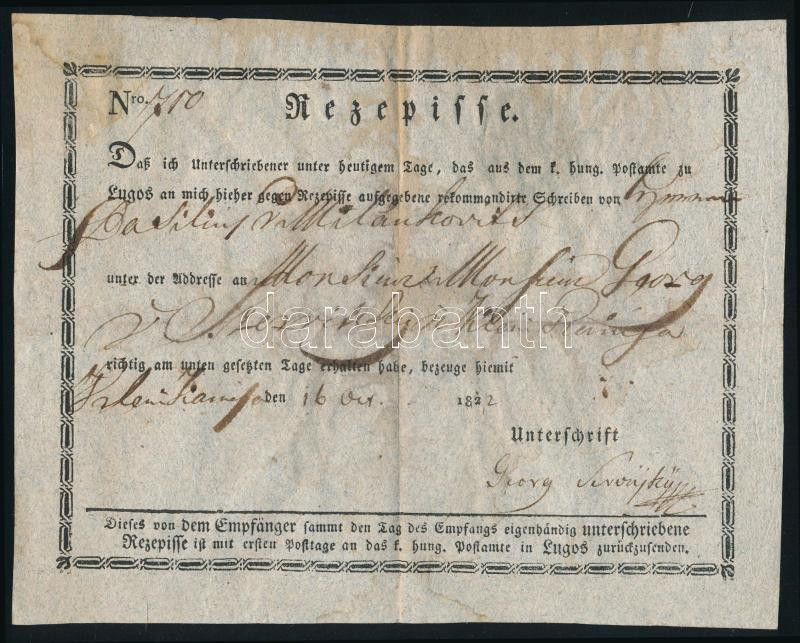 Nro. 710 Rezepisse.
Daß ich Unterschriebener unter heutigem Tage, das aus dem k. hung. Postamte zu
Lugos an mich hieher gegen Rezepisse aufgegebene rekommandirte Schreiben von
Basilius v Milankovits
unter der Addresse an Monsieur Monsieur Georg
v. Klein Kanisa
richtig am unten gesetzten Tage erhalten habe, bezeuge hiemit
Klein Kanisa den 16 Oct. 1822
Unterschrift
Georg
Dieses von dem Empfänger sammt den Tag des Empfangs eigenhändig unterschriebene
Rezepisse ist mit ersten Posttage an das k. hung. Postamte in Lugos zurückzusenden.
darabanth